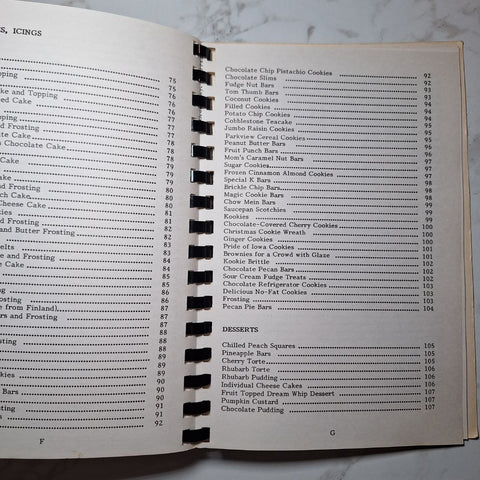 S, ICINGS
pping 75
75
ke and Topping 76
ed Cake 76
76
pping 77
d Frosting 77
te Cake 78
Chocolate Cake 78
78
Cake 79
79
79
d Frosting 80
ch Cake 80
Cheese Cake 80
kies 81
d Frosting 81
and Butter Frosting 82
82
elts 83
e and Frosting 83
e Cake 84
84
85
85
osting 86
osting 86
e from Finland) 87
rs and Frosting 87
87
88
osting 88
88
89
89
kies 89
90
Bars 90
91
sting 91
s 92
F
Chocolate Chip Pistachio Cookies 92
Chocolate Slims 92
Fudge Nut Bars 93
Tom Thumb Bars 93
Coconut Cookies 94
Filled Cookies 94
Potato Chip Cookies 94
Cobblestone Teacake 95
Jumbo Raisin Cookies 95
Parkview Cereal Cookies 95
Peanut Butter Bars 96
Fruit Punch Bars 96
Mom's Caramel Nut Bars 96
Sugar Cookies 97
Frozen Cinnamon Almond Cookies 97
Special K Bars 98
Brickle Chip Bars 98
Magic Cookie Bars 98
Chow Mein Bars 98
Saucepan Scotchies 99
Kookies 99
Chocolate-Covered Cherry Cookies 100
Christmas Cookie Wreath 100
Ginger Cookies 100
Pride of Iowa Cookies 101
Brownies for a Crowd with Glaze 101
Kookie Brittle 102
Chocolate Pecan Bars 102
Sour Cream Fudge Treats 102
Chocolate Refrigerator Cookies 103
Delicious No-Fat Cookies 103
Frosting 103
Pecan Pie Bars 104
DESSERTS
Chilled Peach Squares 105
Pineapple Bars 105
Cherry Torte 105
Rhubarb Torte 106
Rhubarb Pudding 106
Individual Cheese Cakes 106
Fruit Topped Dream Whip Dessert 107
Pumpkin Custard 107
Chocolate Pudding 107
G